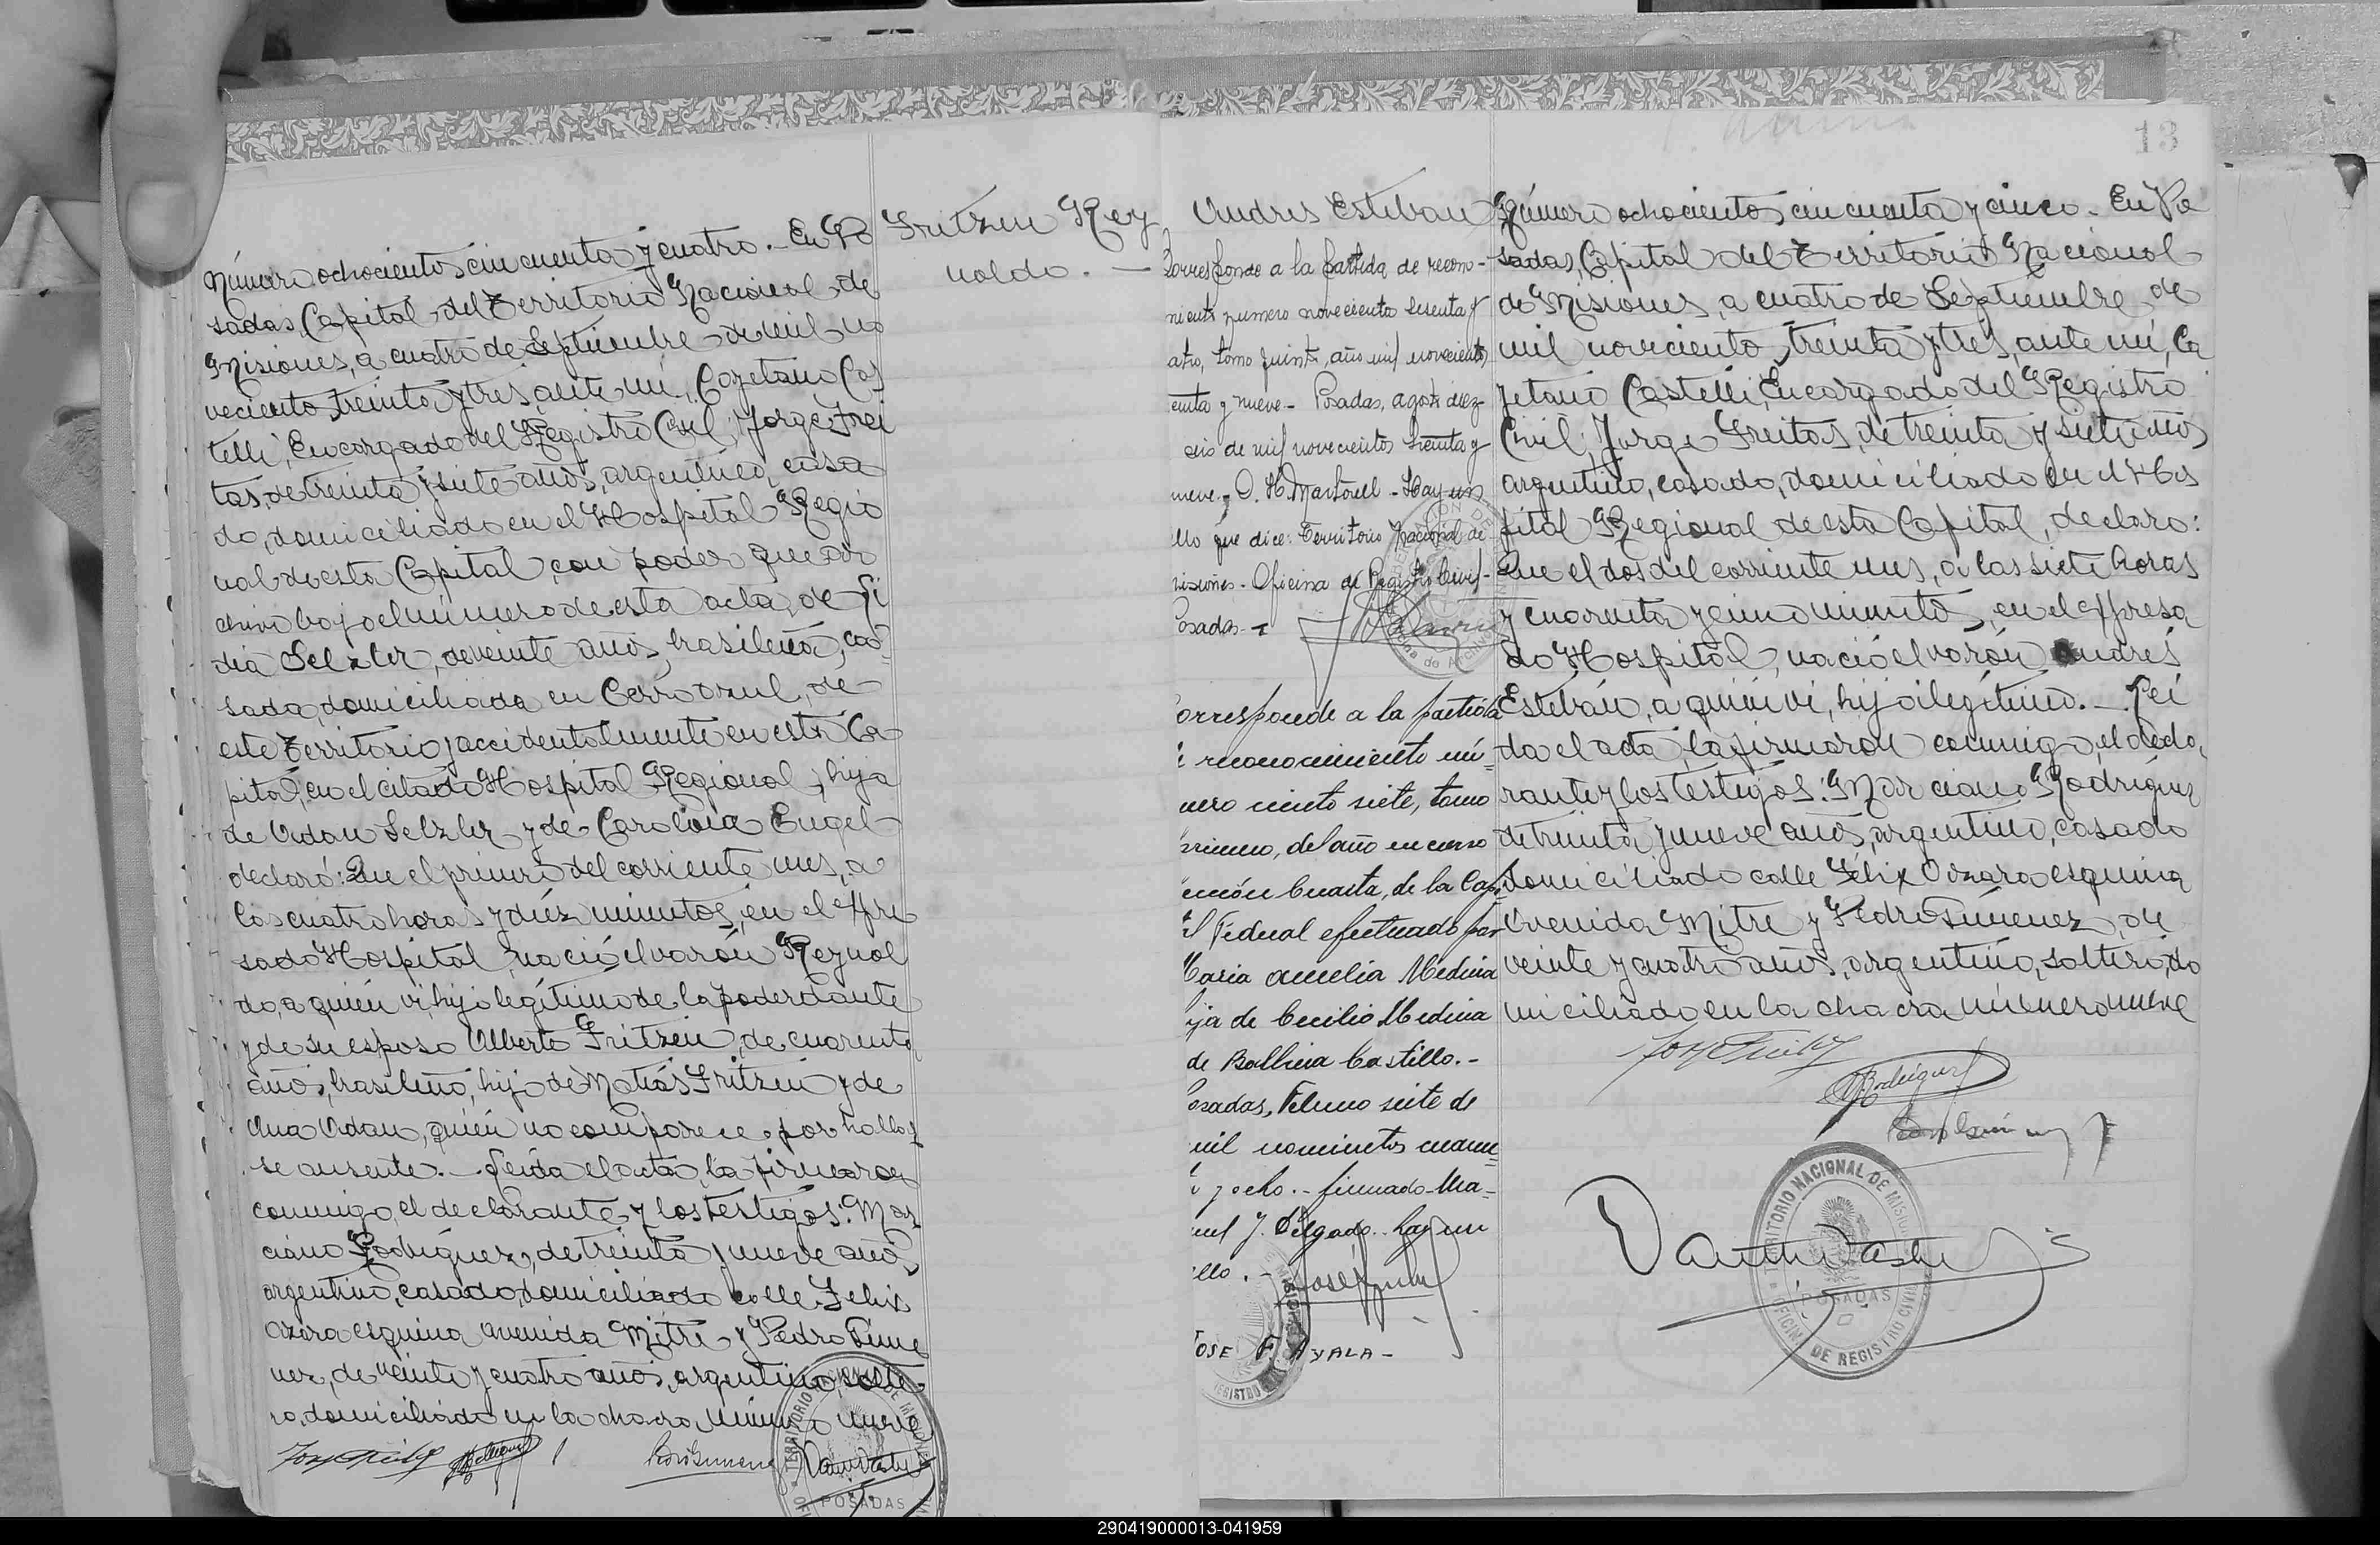 Número ochocientos cincuenta y cuatro.- En Po
sadas, Capital del Territorio Nacional de
Misiones, a cuatro de Septiembre de mil no
vecientos treinta y tres, ante mí, Cayetano Cas
telli, Encargado del Registro Civil, Jorge Frei
tas, de treinta y siete años, argentino, casa
do, domiciliado en el Hospital Regio
nal de esta Capital, con poder que ar
chivo bajo el número de esta acta, de Li
dia Selzler, de veinte años, brasileña, ca
sada, domiciliada en Cerro Azul, de
este Territorio y accidentalmente en esta Ca
pital, en el citado Hospital Regional, hija
de Adan Selzler y de Carolina Engel
declaró: Que el primero del corriente mes, a
las cuatro horas y diéz minutos, en el expre
sado Hospital, nació el varón Reynol
do, a quién vi, hijo legítimo de la poderdante
y de su esposo Alberto Fritzen, de cuarenta
años, brasileño, hijo de Matías Fritzen y de
Ana Adan, quién no comparece por hallar
se ausente.- Leída el acta, la firmaron
conmigo, el declarante y los testigos: Mar
ciano Rodríguez, de treinta y nueve años,
argentino, casado, domiciliado calle Felix
Azara esquina avenida Mitre y Pedro Gime
nez, de veinte y cuatro años, argentino, solte
ro, domiciliado en la chacra número nueve
POSADAS
Fritzen Rey
noldo.-
Andres Esteban
Corresponde a la partida de recono-
miento numero novecientos sesenta y
atro, tomo quinto, año mil novecientos
enta y nueve- Posadas, agosto diez
seis de mil novecientos treinta y
nueve.- O. H. Martorell - Hay un
llo que dice: Territorio Nacional de
misiones - Oficina de Registro Civil-
Posadas.-
orresponde a la partida
reconocimiento nú-
mero ciento siete, tomo
primero, del año en curso
ección Cuarta, de la Capi
l Federal efectuado por
Maria Amelia Medina
ija de Cecilio Medina
de Balbina Castillo.-
osadas, Febrero siete de
mil novecientos cuaren
y ocho.- firmado- Ma-
uel J. Delgado. Hay un
llo.-
JOSE F AYALA-
13
Número ochocientos cincuenta y cinco.- En Po
sadas, Capital del Territorio Nacional
de Misiones, a cuatro de Septiembre de
mil novecientos treinta y tres, ante mí, Ca
yetano Castelli, Encargado del Registro
Civil, Jorge Freitas, de treinta y siete años
argentino, casado, domiciliado en el Hos
pital Regional de esta Capital, declaro:
Que el dos del corriente mes, a las siete horas
y cuarenta y cinco minutos, en el expresa
do Hospital, nació el varón Andrés
Estebán, a quién vi, hijo ilegítimo.- Leí
da el acta, la firmaron conmigo, el decla
rante y los testigos: Marciano Rodríguez
de treinta y nueve años, argentino, casado
domiciliado calle Félix Azara esquina
Avenida Mitre y Pedro Gimenez, de
veinte y cuatro años, argentino, soltero, do
miciliado en la chacra número nueve
TERRITORIO NACIONAL DE MISIONES
POSADAS
OFICINA DE REGISTRO CIVIL
290419000013-041959